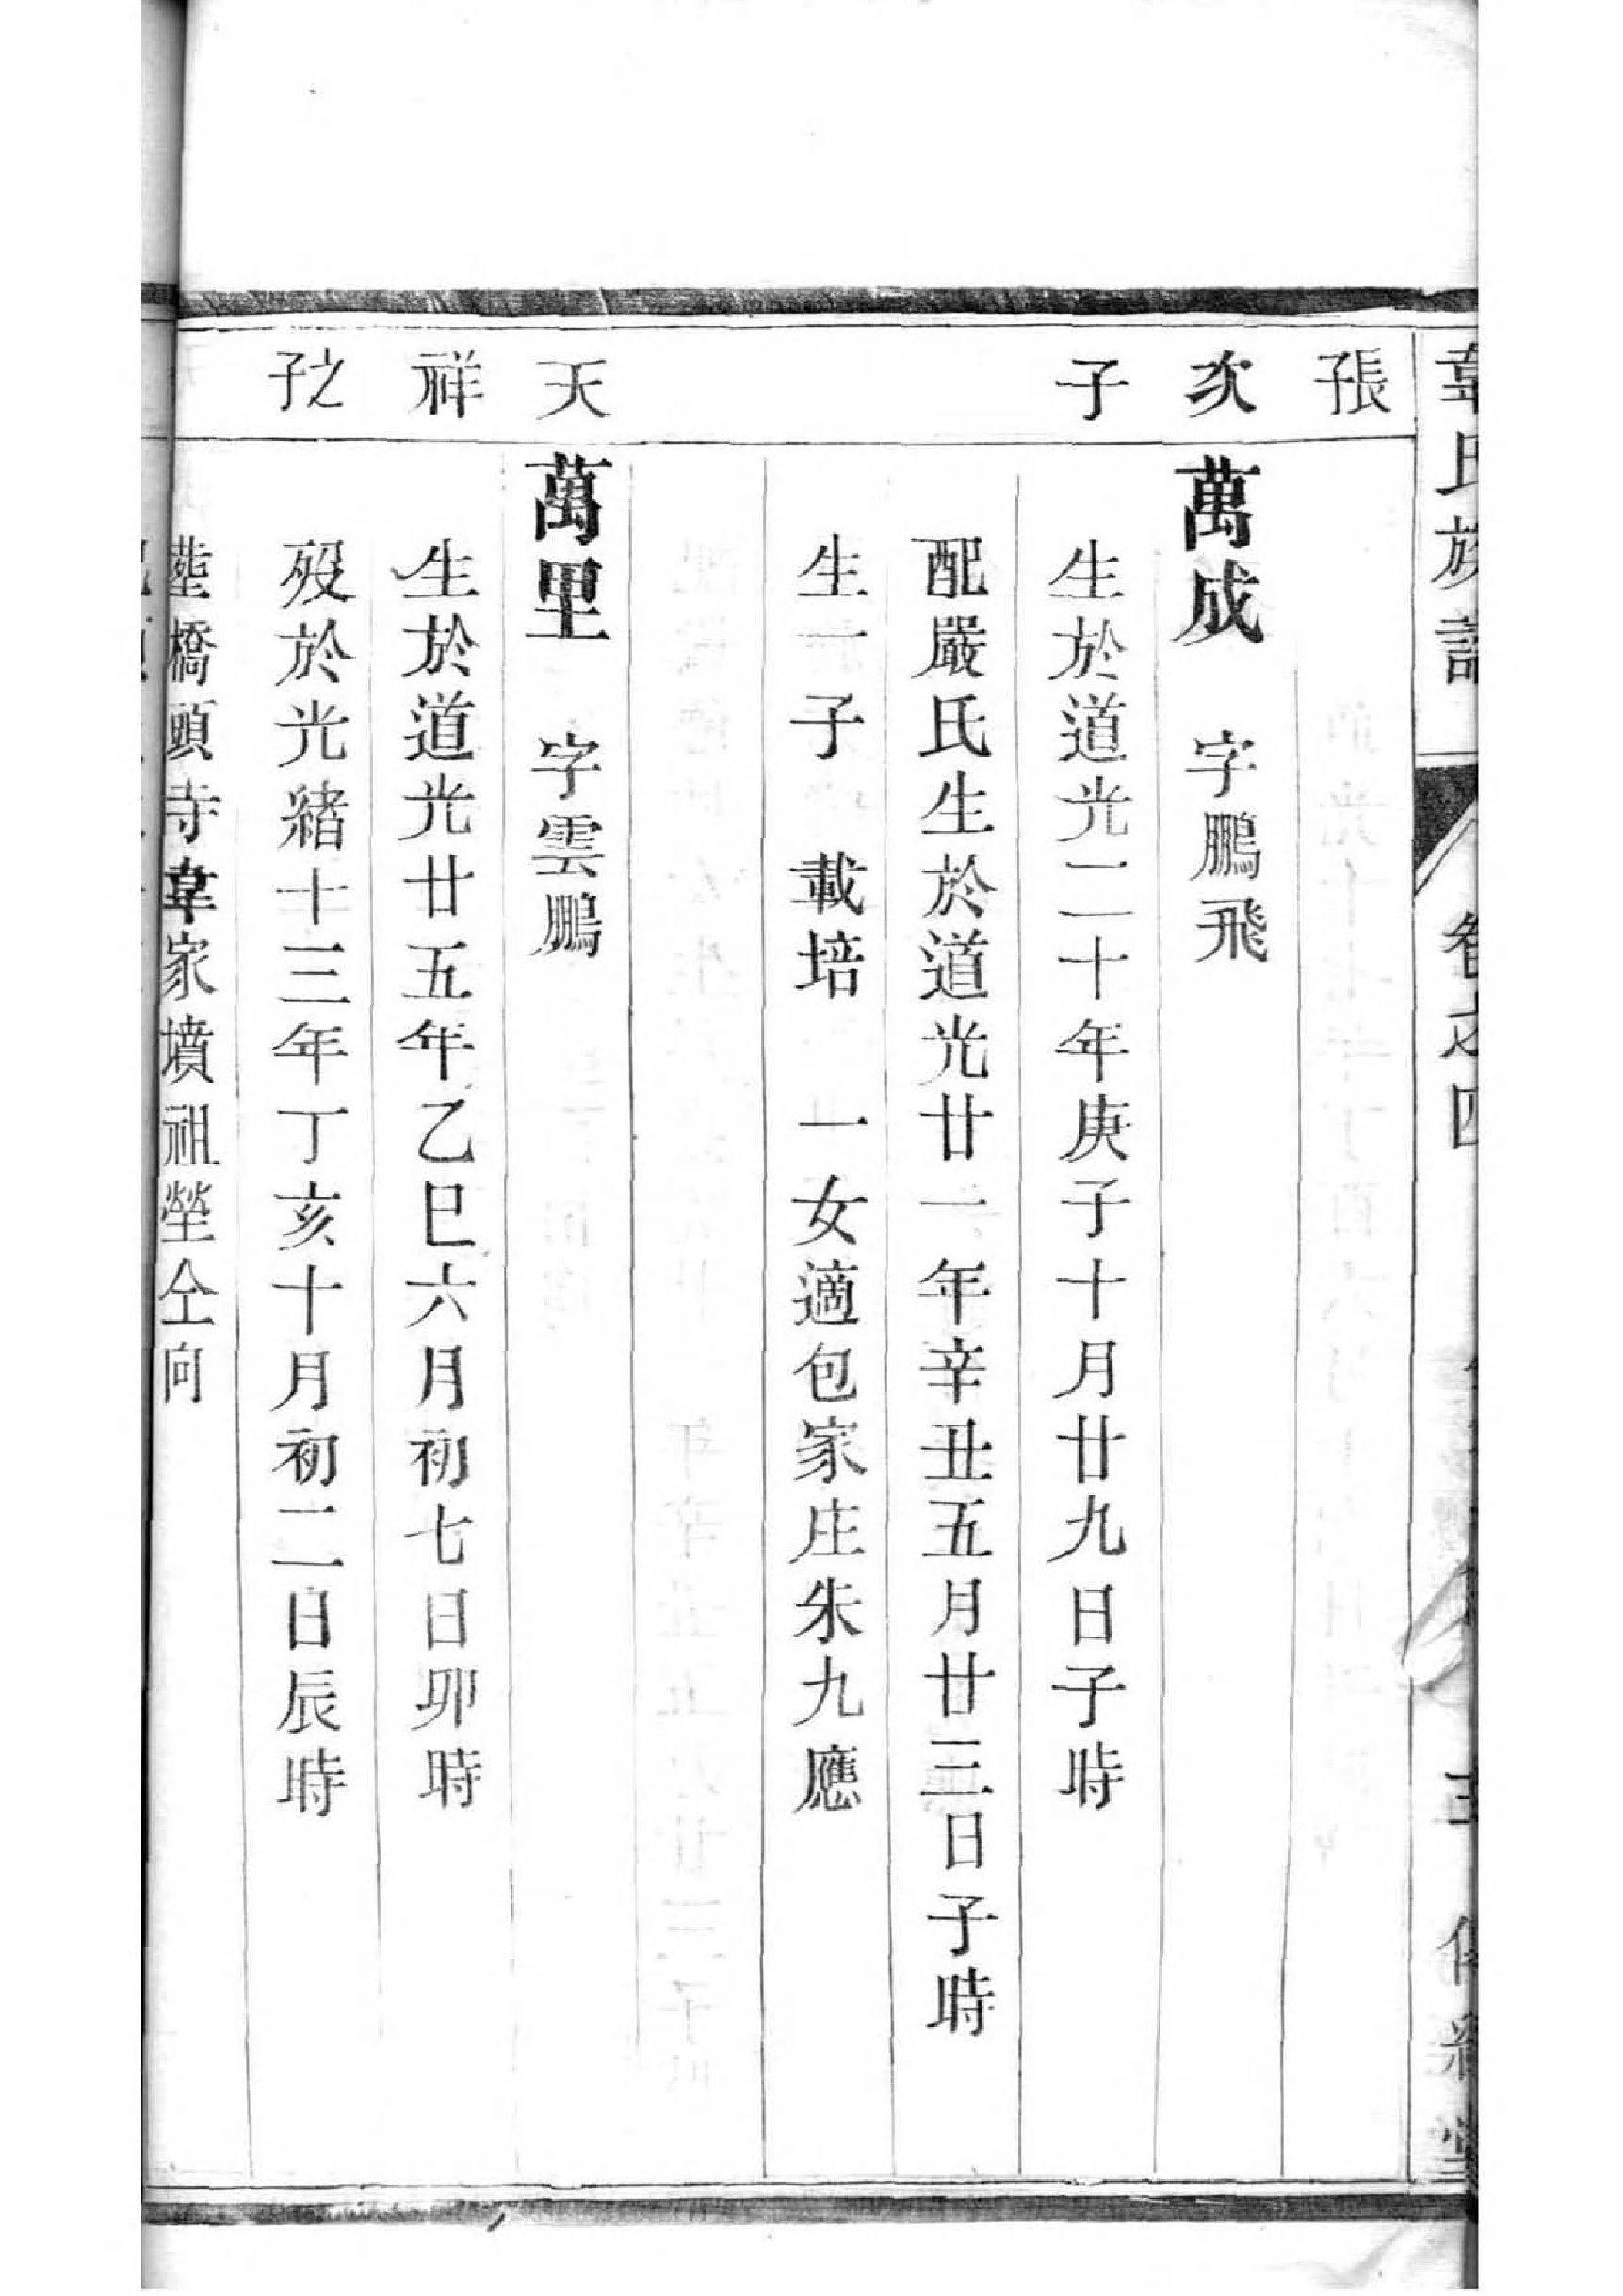 韋氏族譜 之四
長子
次 萬成 字鵬飛
子 生於道光二十年庚子十月廿九日子時
配嚴氏生於道光廿一年辛丑五月廿三日子時
生一子 載培 一女適包家庄朱九應
天 萬里 字雲鵬
祥 生於道光廿五年乙巳六月初七日卯時
之子 歿於光緒十三年丁亥十月初二日辰時
塟橋頭寺韋家墳祖塋仝向